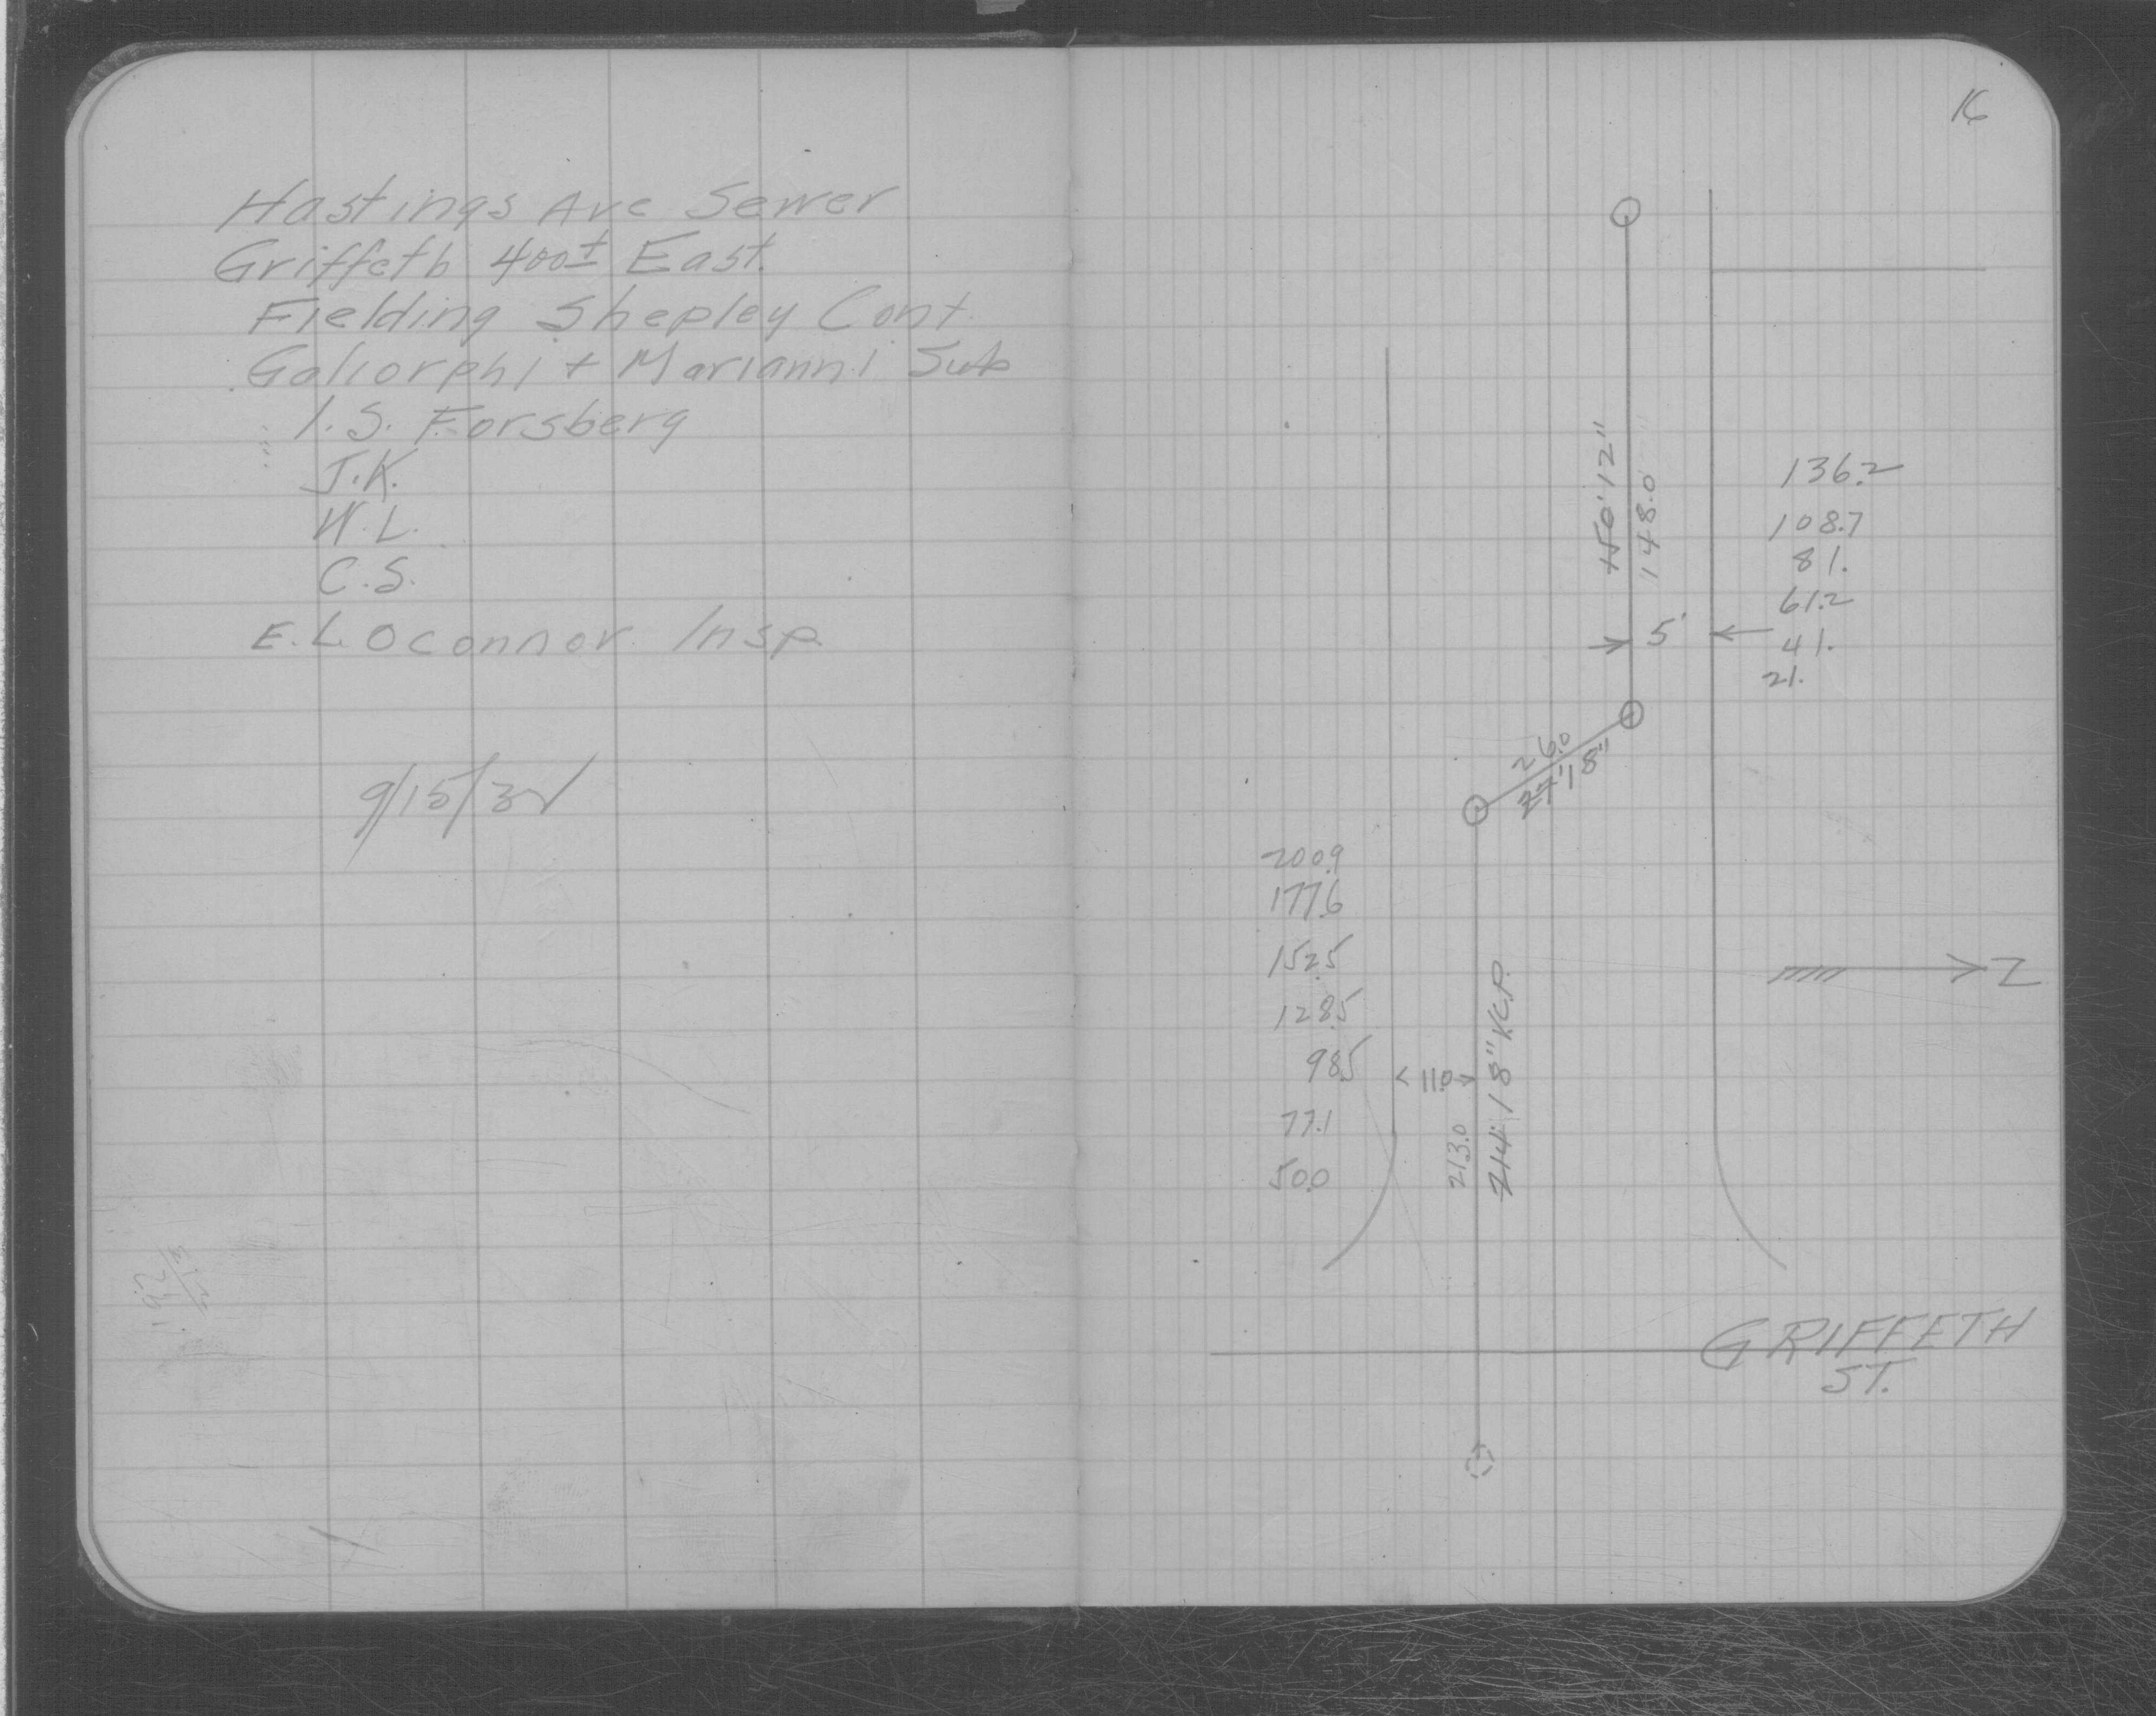 Hastings Ave Sewer
Griffeth 400± East.
Fielding Shepley Cont.
Galiorphi + Marianni Sub
I.S. Forsberg
J.K.
W.L.
C.S.
E.L. OConnor Insp.
16
12"
148.0
136.2
108.7
81.
61.2
41.
21.
5'
26.0
27' 18"
200.9
177.6
152.5
128.5
98.5
77.1
50.0
11.0
213.0
214' 18" V.C.P.
Z
GRIFFETH
ST.